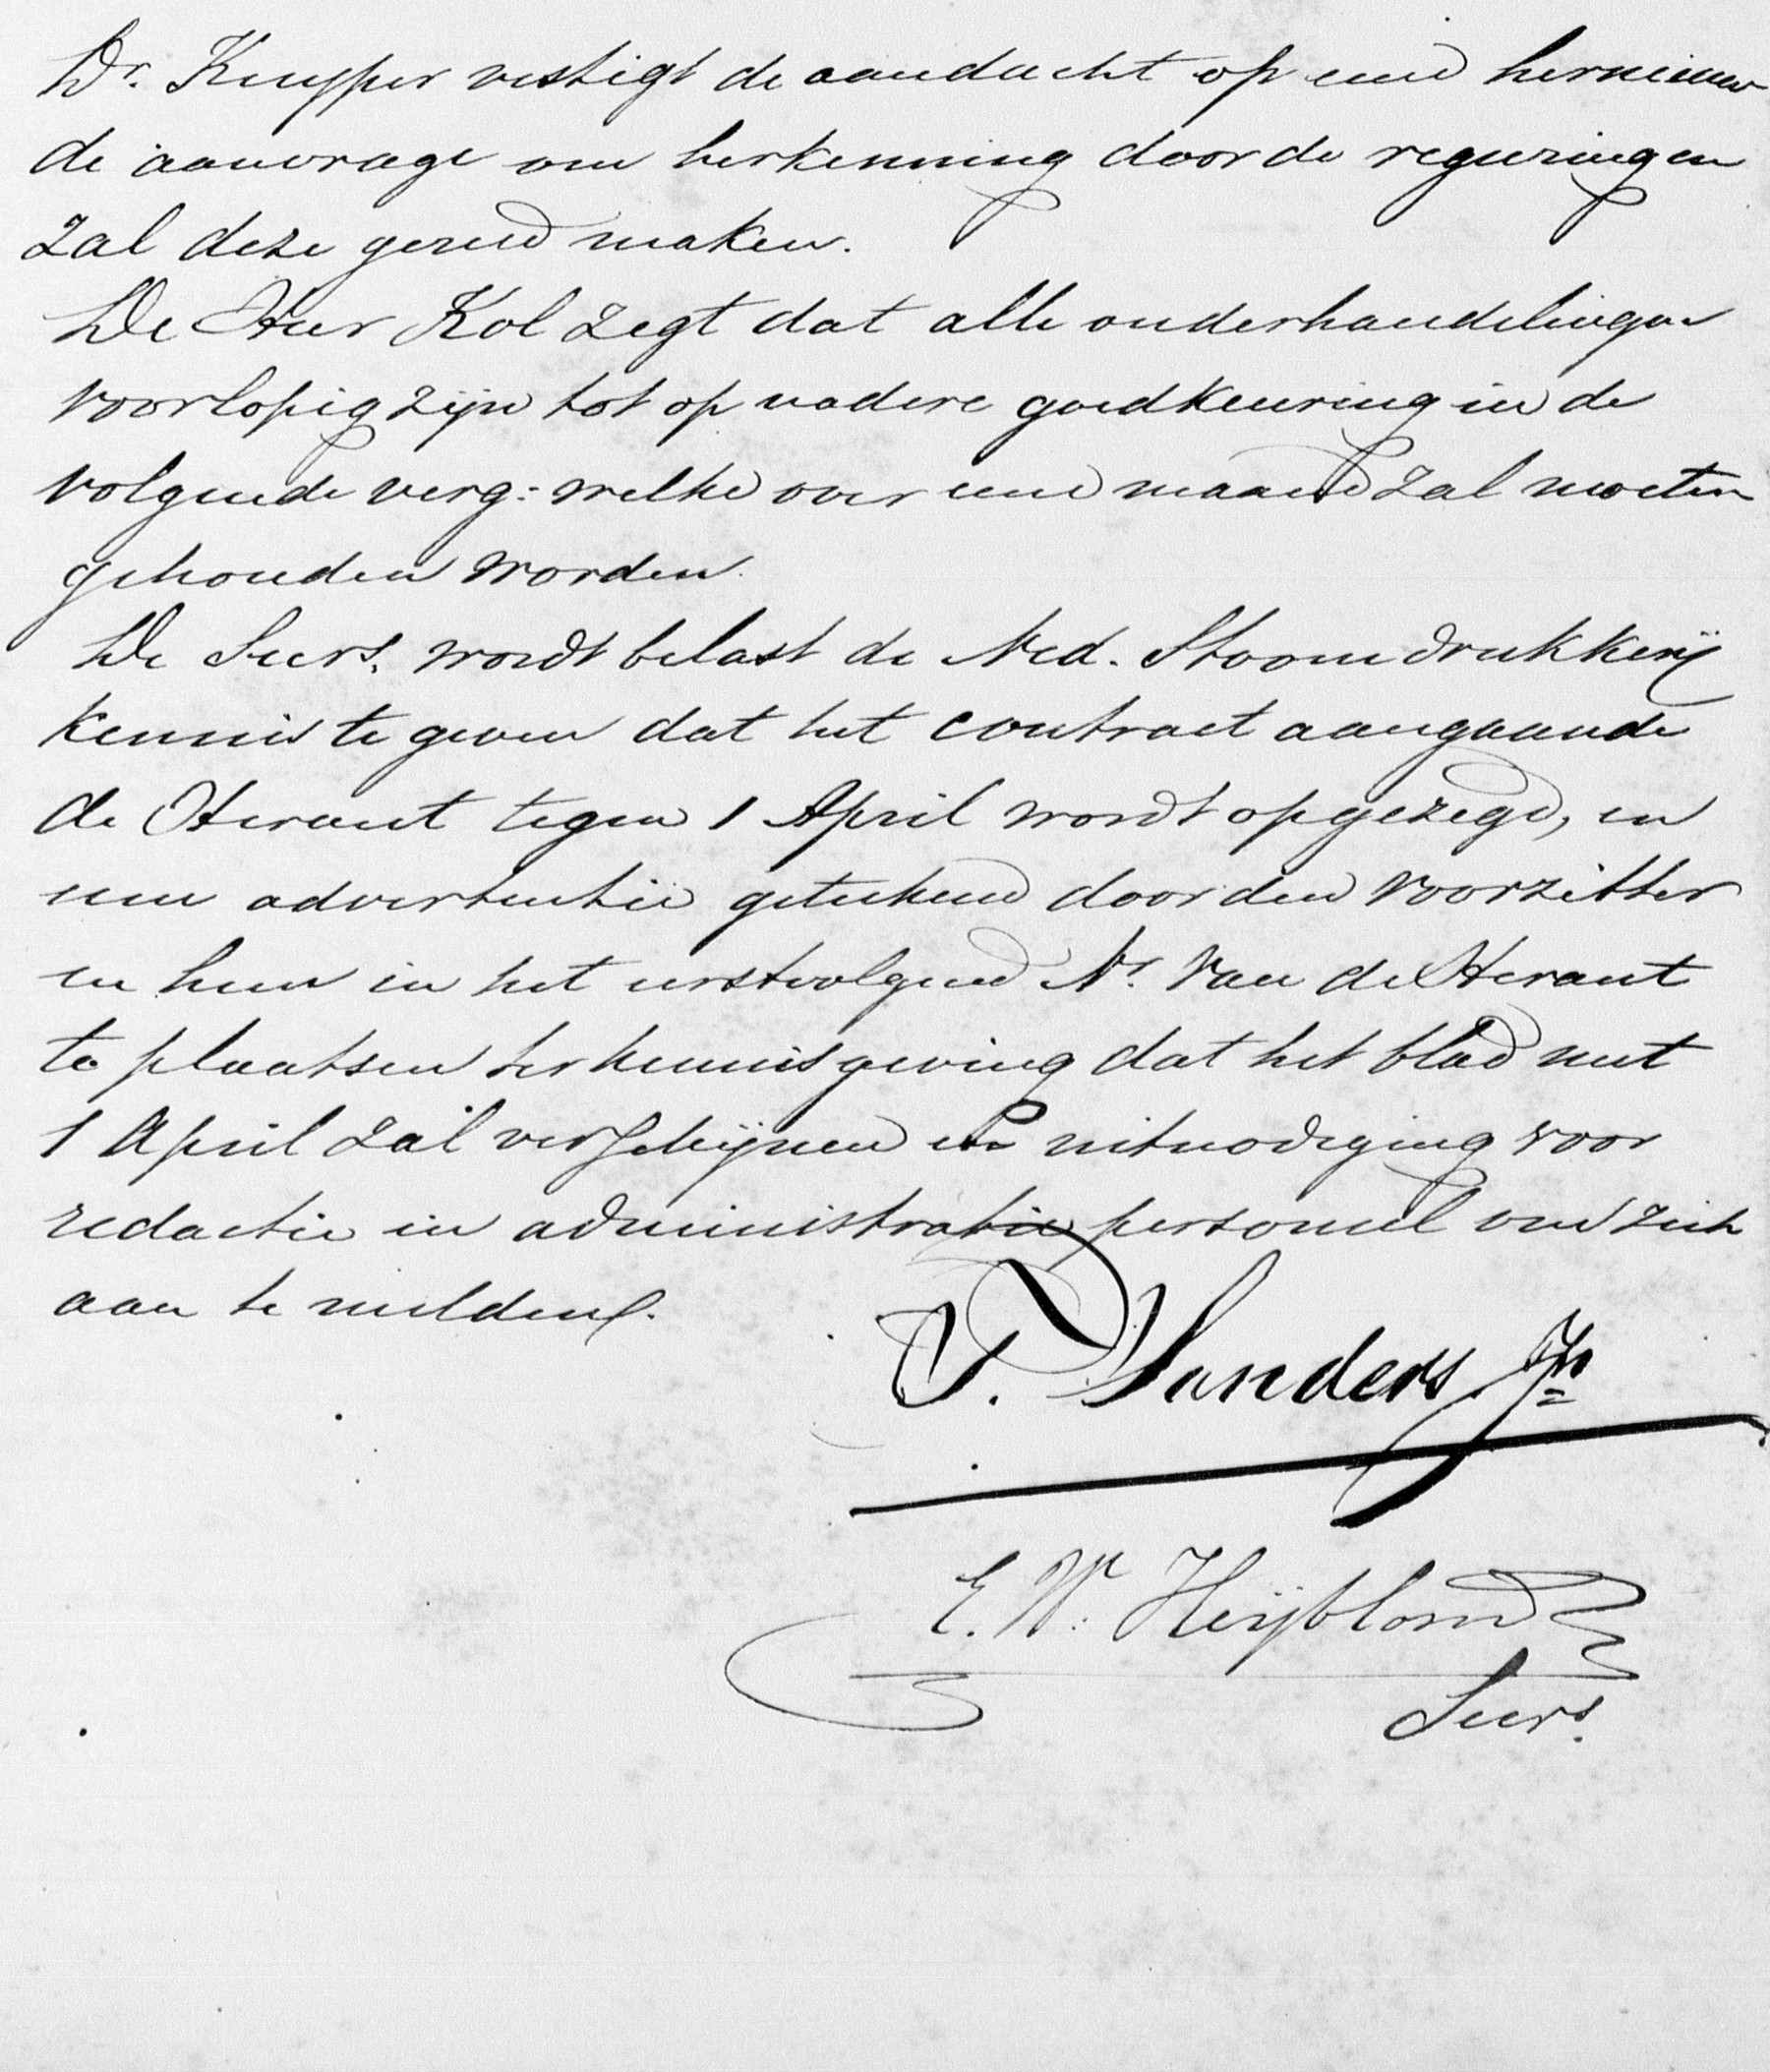 Dr. Kuyper vestigt de aandacht op eene hernieuw
de aanvrage om herkenning door de regeering en
zal deze gereed maken.
De Heer Kol zegt dat alle onderhandelingen
voorlopig zijn tot op nadere goedkeuring in de
volgende verg: welke over eene maand zal moeten
gehouden worden.
De Secrs. wordt belast de Ned. Stoomdrukkerij
kennis te geven dat het contract aangaande
de Heraut tegen 1 April wordt opgezegd, en
eene advertentie geteekend door den voorzitter
en hem in het eerstvolgend Nr. van de Heraut
te plaatsen ter kennisgeving dat het blad met
1 April zal verschijnen en uitnodiging voor
redactie en administratie personeel om zich
aan te melden.
Sanders Jr
E. W. Heijblom
Secrs.